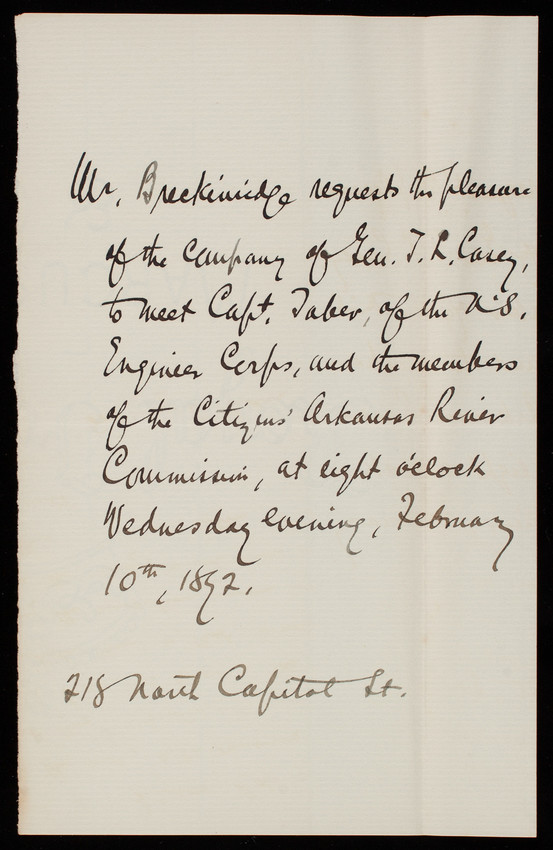 Mr. Breckinridge requests the pleasure
of the company of Gen. T. L. Casey,
to meet Capt. Taber, of the U.S.
Engineer Corps, and the members
of the Citizens' Arkansas River
Commission, at eight o'clock
Wednesday evening, February
10th, 1892.
218 North Capitol St.